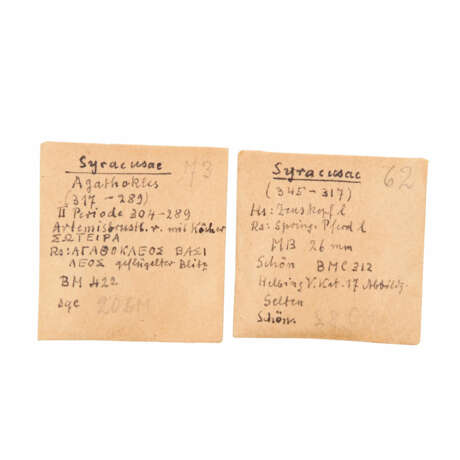 Syracusae 73
Agathokles
(317-289)
II Periode 304-289
Artemisbrustb. r. mit Köcher
ΣΩΤΕΙΡΑ
Rs: ΑΓΑΘΟΚΛΕΟΣ ΒΑΣΙ
ΛΕΟΣ geflügelter Blitz
BM 422
sge
Syracusae 62
(345-317)
Hs: Zeuskopf l
Rs: Spring. Pferd l
MB 26 mm
Schön BMC 312
Helbing V. Kat. 17
Selten
Schön.